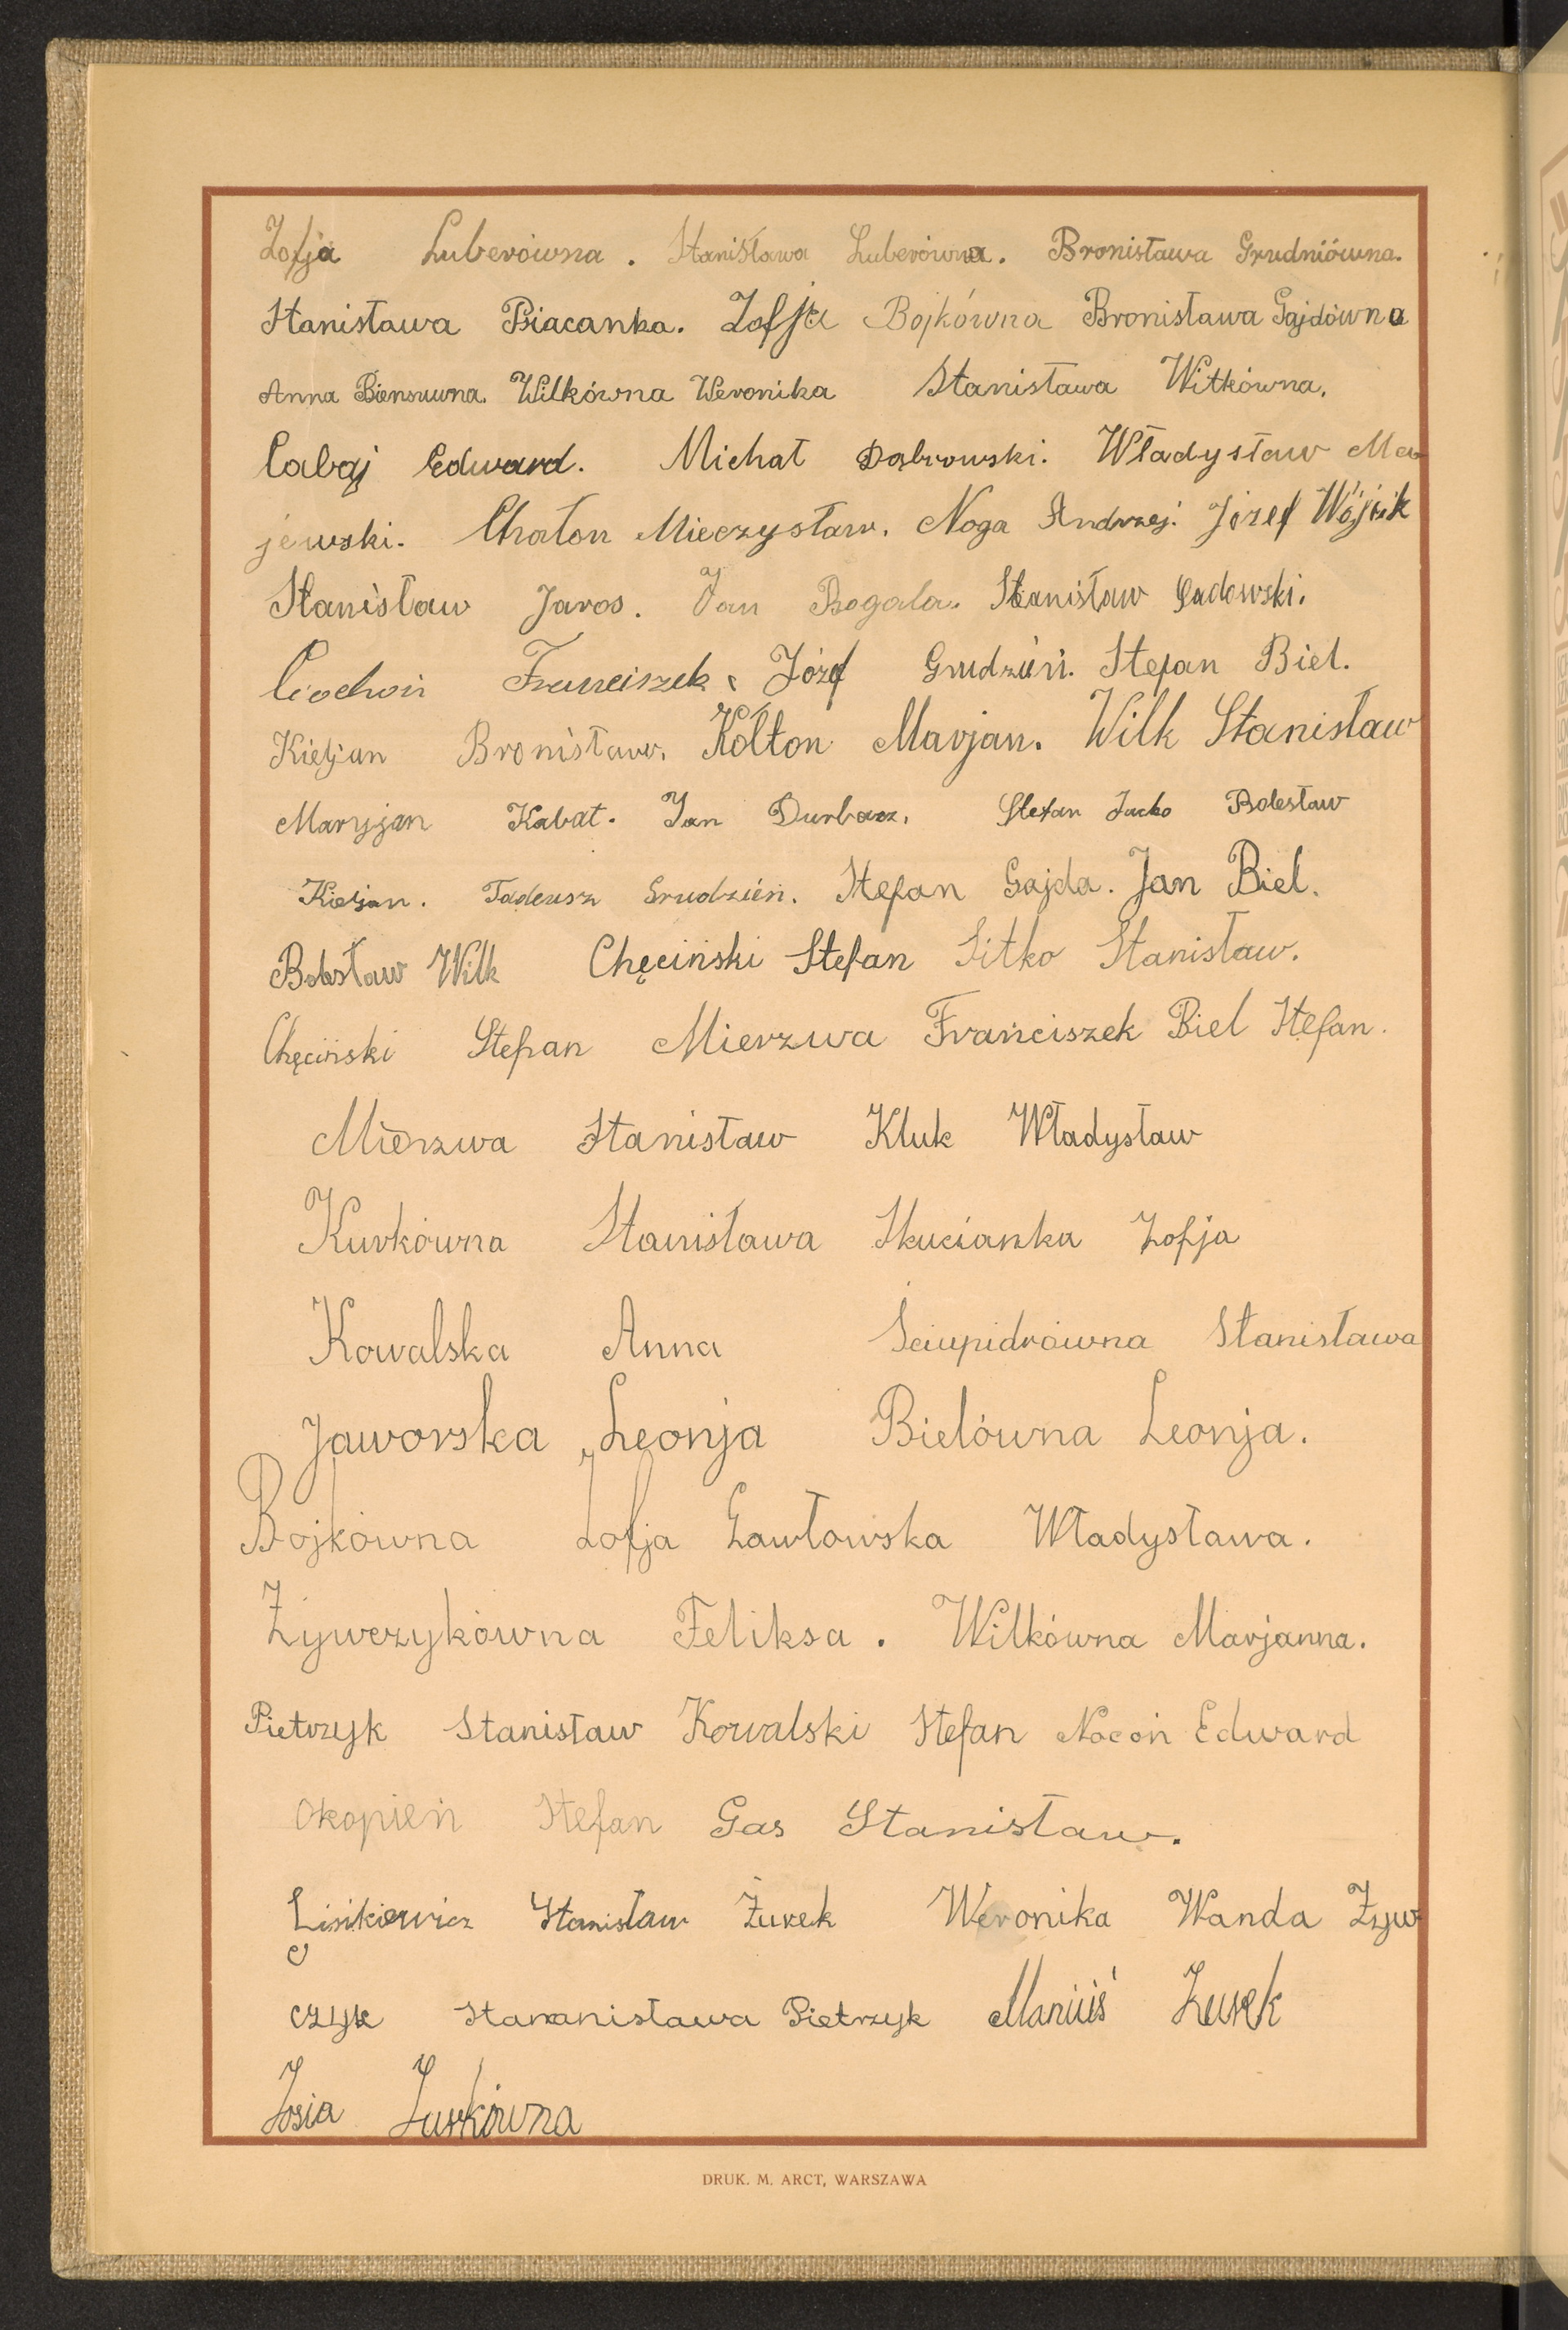 Zofja Luberówna. Stanisława Luberówna. Bronisława Grudniówna.
Stanisława Psiacanka. Zofja Bojkówna Bronisława Gajdówna
Anna Biensuwna. Wilkówna Weronika Stanisława Witkówna.
Cabaj Edward. Michał Dąbrowski. Władysław Ma
jewski. Chałon Mieczysław. Noga Andrzej. Józef Wójcik
Stanisław Jaros. Jan Rogala. Stanisław Sadowski.
Ciochoń Franciszek. Józef Grudzień. Stefan Biel.
Kieljan Bronisław. Kołton Marjan. Wilk Stanisław
Maryjan Kabat. Jan Durbacz. Stefan Jacko Bolesław
Kieljan. Tadeusz Grudzień. Stefan Gajda. Jan Biel.
Bolesław Wilk Chęciński Stefan Sitko Stanisław.
Chęciński Stefan Mierzwa Franciszek Biel Stefan.
Mierzwa Stanisław Kluk Władysław
Kurkówna Stanisława Skucianka Zofja
Kowalska Anna Ściupidrówna Stanisława
Jaworska Leonja Bielówna Leonja.
Bojkówna Zofja Gawłowska Władysława.
Żywczykówna Feliksa. Wilkówna Marjanna.
Pietrzyk Stanisław Kowalski Stefan Nocoń Edward
Okopień Stefan Gas Stanisław.
Lisikiewicz Stanisław Żurek Weronika Wanda Żyw
czyk Stananisława Pietrzyk Maniuś Żurek
Zosia Żurkówna
DRUK. M. ARCT, WARSZAWA